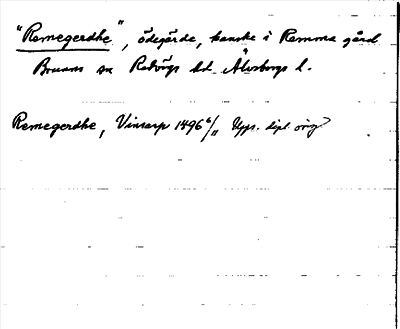 "Remegerdhe", ödegärde, kanske i Remma gård
Brunns sn Redvägs hd Älvsborgs l.
Remegerdhe, Vinsarp 1496 6/11 Upps. dipl. orig